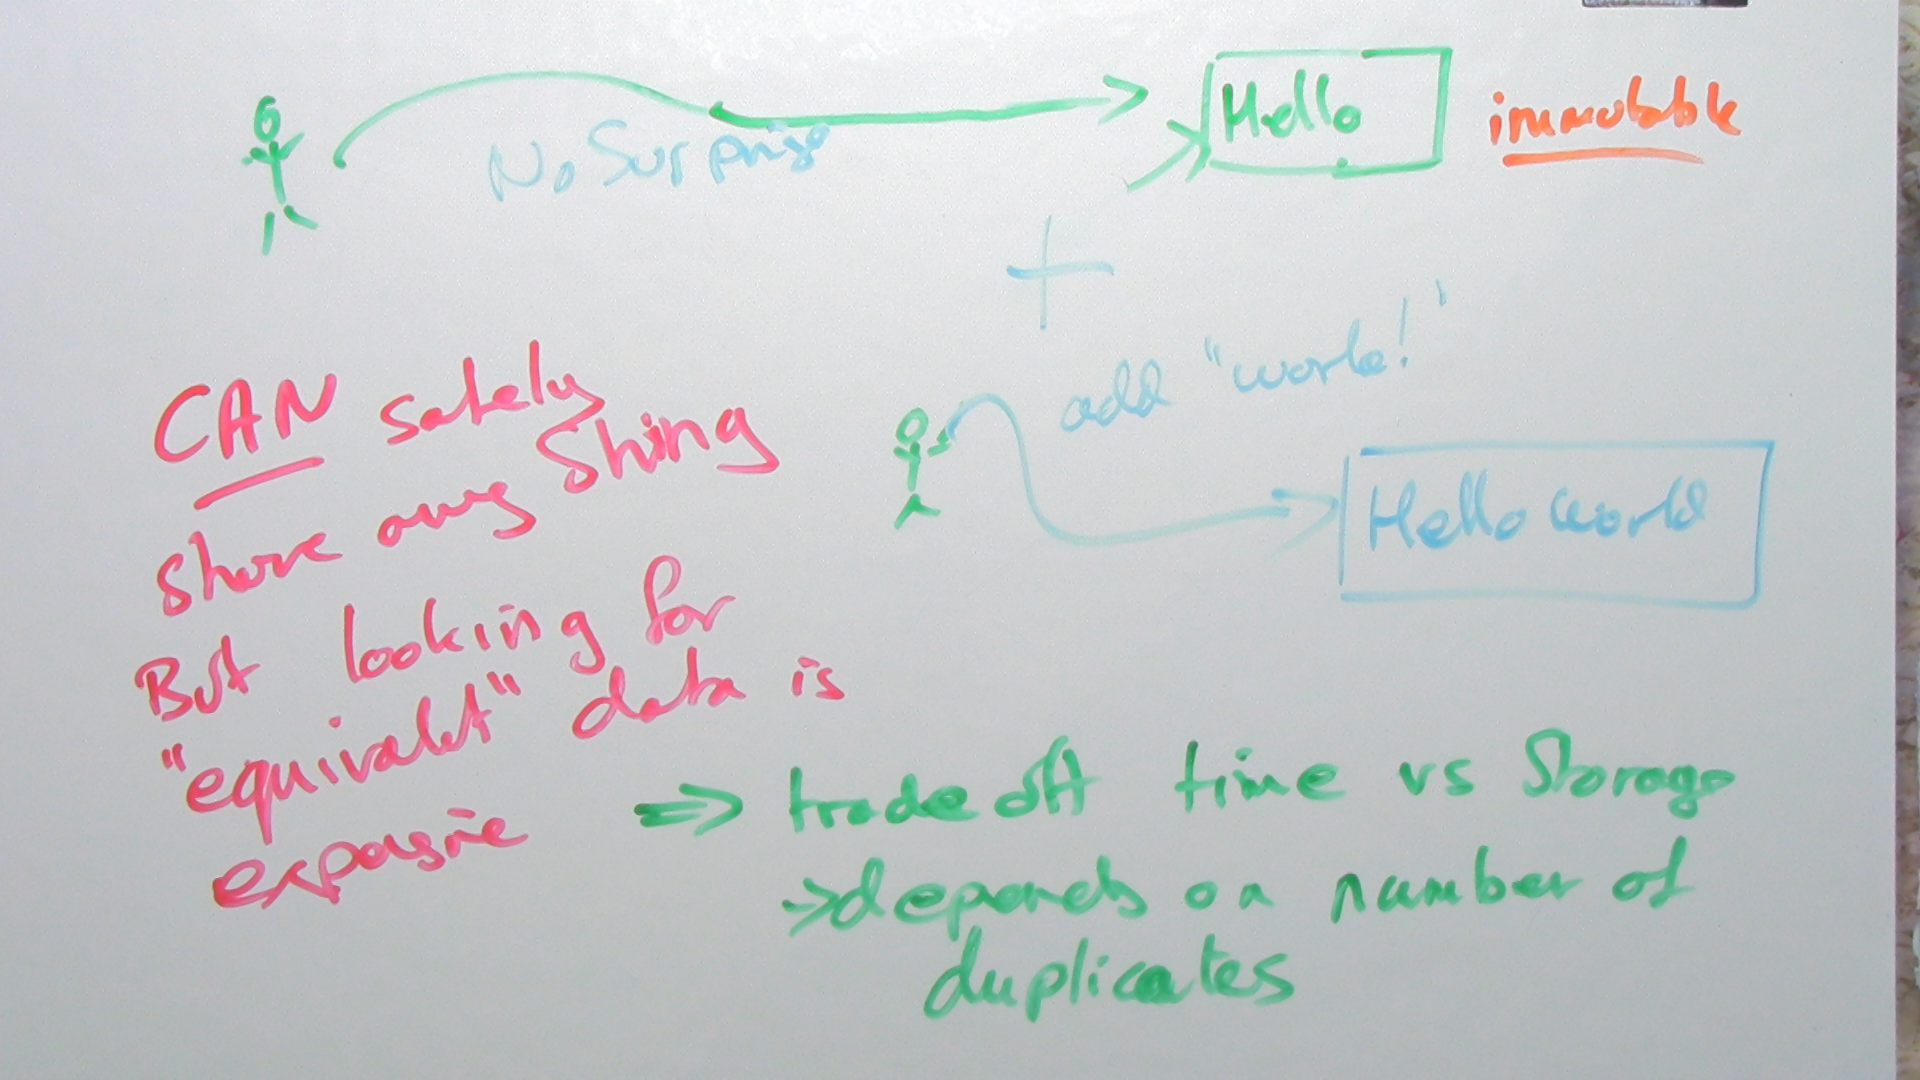 Hello
immutable
No Surprise
+
add "world!"
Hello World
CAN safely
share any String
But looking for
"equivalet" data is
expensive
=> trade off time vs Storage
-> depends on number of
duplicates